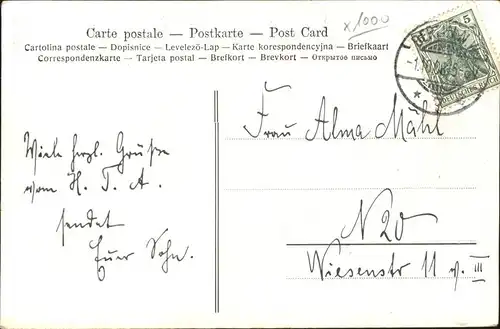 Carte postale – Postkarte – Post Card
x1000
Cartolina postale – Dopisnice – Levelező-Lap – Karte korespondencyjna – Briefkaart
Correspondenzkarte – Tarjeta postal – Brefkort – Brevkort – Открытое письмо
5
DEUTSCHES REICH
Viele herzl. Grüße
vom H. T. A.
sendet
Euer Sohn.
Frau Alma Mähl
N 20
Wiesenstr 11 v. III